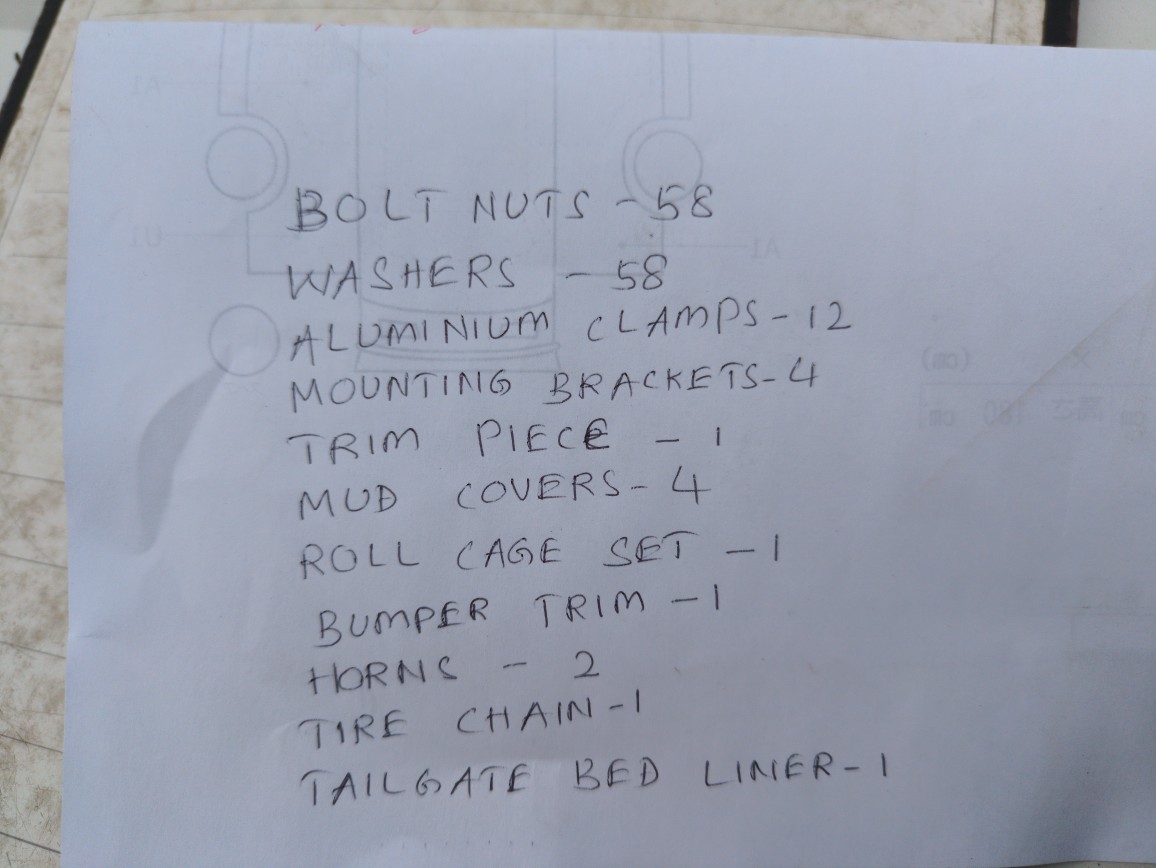 BOLT NUTS - 58
WASHERS - 58
ALUMINIUM CLAMPS - 12
MOUNTING BRACKETS - 4
TRIM PIECE - 1
MUD COVERS - 4
ROLL CAGE SET - 1
BUMPER TRIM - 1
HORNS - 2
TIRE CHAIN - 1
TAILGATE BED LINER - 1